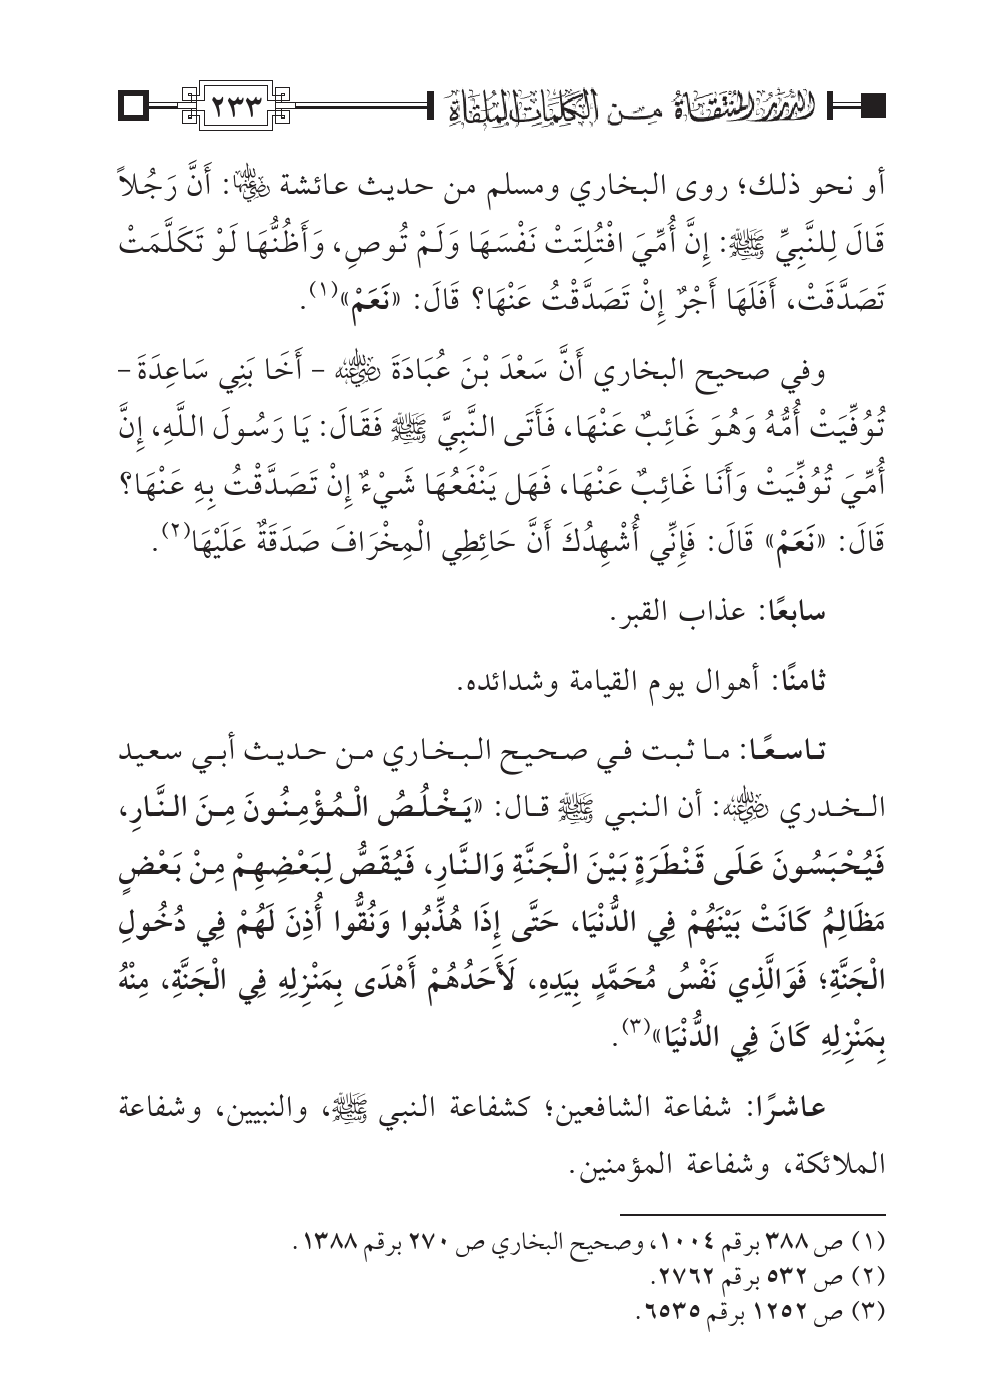 الدُّرَرُ المُنْتَقَاةُ مِنَ الكَلِمَاتِ المُلْقَاةِ ٢٣٣
أو نحو ذلك؛ روى البخاري ومسلم من حديث عائشة رضي الله عنها: أَنَّ رَجُلاً
قَالَ لِلنَّبِيِّ ﷺ: إِنَّ أُمِّيَ افْتُلِتَتْ نَفْسَهَا وَلَمْ تُوصِ، وَأَظُنُّهَا لَوْ تَكَلَّمَتْ
تَصَدَّقَتْ، أَفَلَهَا أَجْرٌ إِنْ تَصَدَّقْتُ عَنْهَا؟ قَالَ: «نَعَمْ»(١).
وفي صحيح البخاري أَنَّ سَعْدَ بْنَ عُبَادَةَ رضي الله عنه – أَخَا بَنِي سَاعِدَةَ –
تُوُفِّيَتْ أُمُّهُ وَهُوَ غَائِبٌ عَنْهَا، فَأَتَى النَّبِيَّ ﷺ فَقَالَ: يَا رَسُولَ اللَّهِ، إِنَّ
أُمِّيَ تُوُفِّيَتْ وَأَنَا غَائِبٌ عَنْهَا، فَهَل يَنْفَعُهَا شَيْءٌ إِنْ تَصَدَّقْتُ بِهِ عَنْهَا؟
قَالَ: «نَعَمْ» قَالَ: فَإِنِّي أُشْهِدُكَ أَنَّ حَائِطِي الْمِخْرَافَ صَدَقَةٌ عَلَيْهَا(٢).
سابعًا: عذاب القبر.
ثامنًا: أهوال يوم القيامة وشدائده.
تاسعًا: ما ثبت في صحيح البخاري من حديث أبي سعيد
الخدري رضي الله عنه: أن النبي ﷺ قال: «يَخْلُصُ الْمُؤْمِنُونَ مِنَ النَّارِ،
فَيُحْبَسُونَ عَلَى قَنْطَرَةٍ بَيْنَ الْجَنَّةِ وَالنَّارِ، فَيُقَصُّ لِبَعْضِهِمْ مِنْ بَعْضٍ
مَظَالِمُ كَانَتْ بَيْنَهُمْ فِي الدُّنْيَا، حَتَّى إِذَا هُذِّبُوا وَنُقُّوا أُذِنَ لَهُمْ فِي دُخُولِ
الْجَنَّةِ؛ فَوَالَّذِي نَفْسُ مُحَمَّدٍ بِيَدِهِ، لَأَحَدُهُمْ أَهْدَى بِمَنْزِلِهِ فِي الْجَنَّةِ، مِنْهُ
بِمَنْزِلِهِ كَانَ فِي الدُّنْيَا»(٣).
عاشرًا: شفاعة الشافعين؛ كشفاعة النبي ﷺ، والنبيين، وشفاعة
الملائكة، وشفاعة المؤمنين.
(١) ص ٣٨٨ برقم ١٠٠٤، وصحيح البخاري ص ٢٧٠ برقم ١٣٨٨.
(٢) ص ٥٣٢ برقم ٢٧٦٢.
(٣) ص ١٢٥٢ برقم ٦٥٣٥.